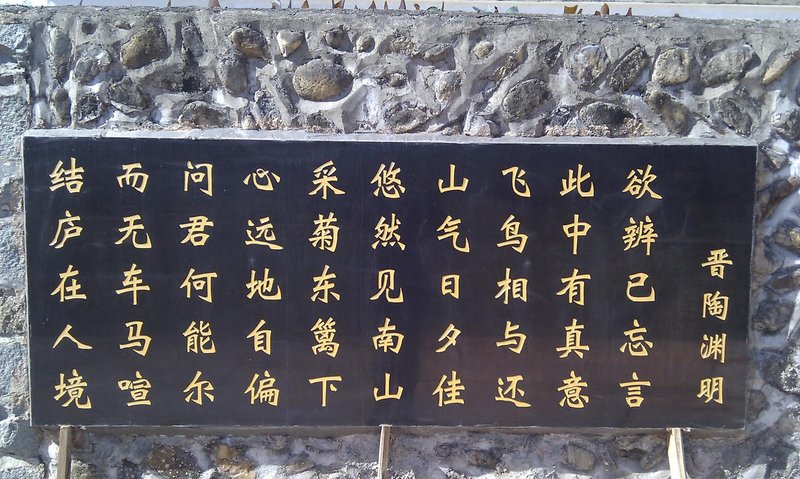 结庐在人境
而无车马喧
问君何能尔
心远地自偏
采菊东篱下
悠然见南山
山气日夕佳
飞鸟相与还
此中有真意
欲辨已忘言
晋陶渊明